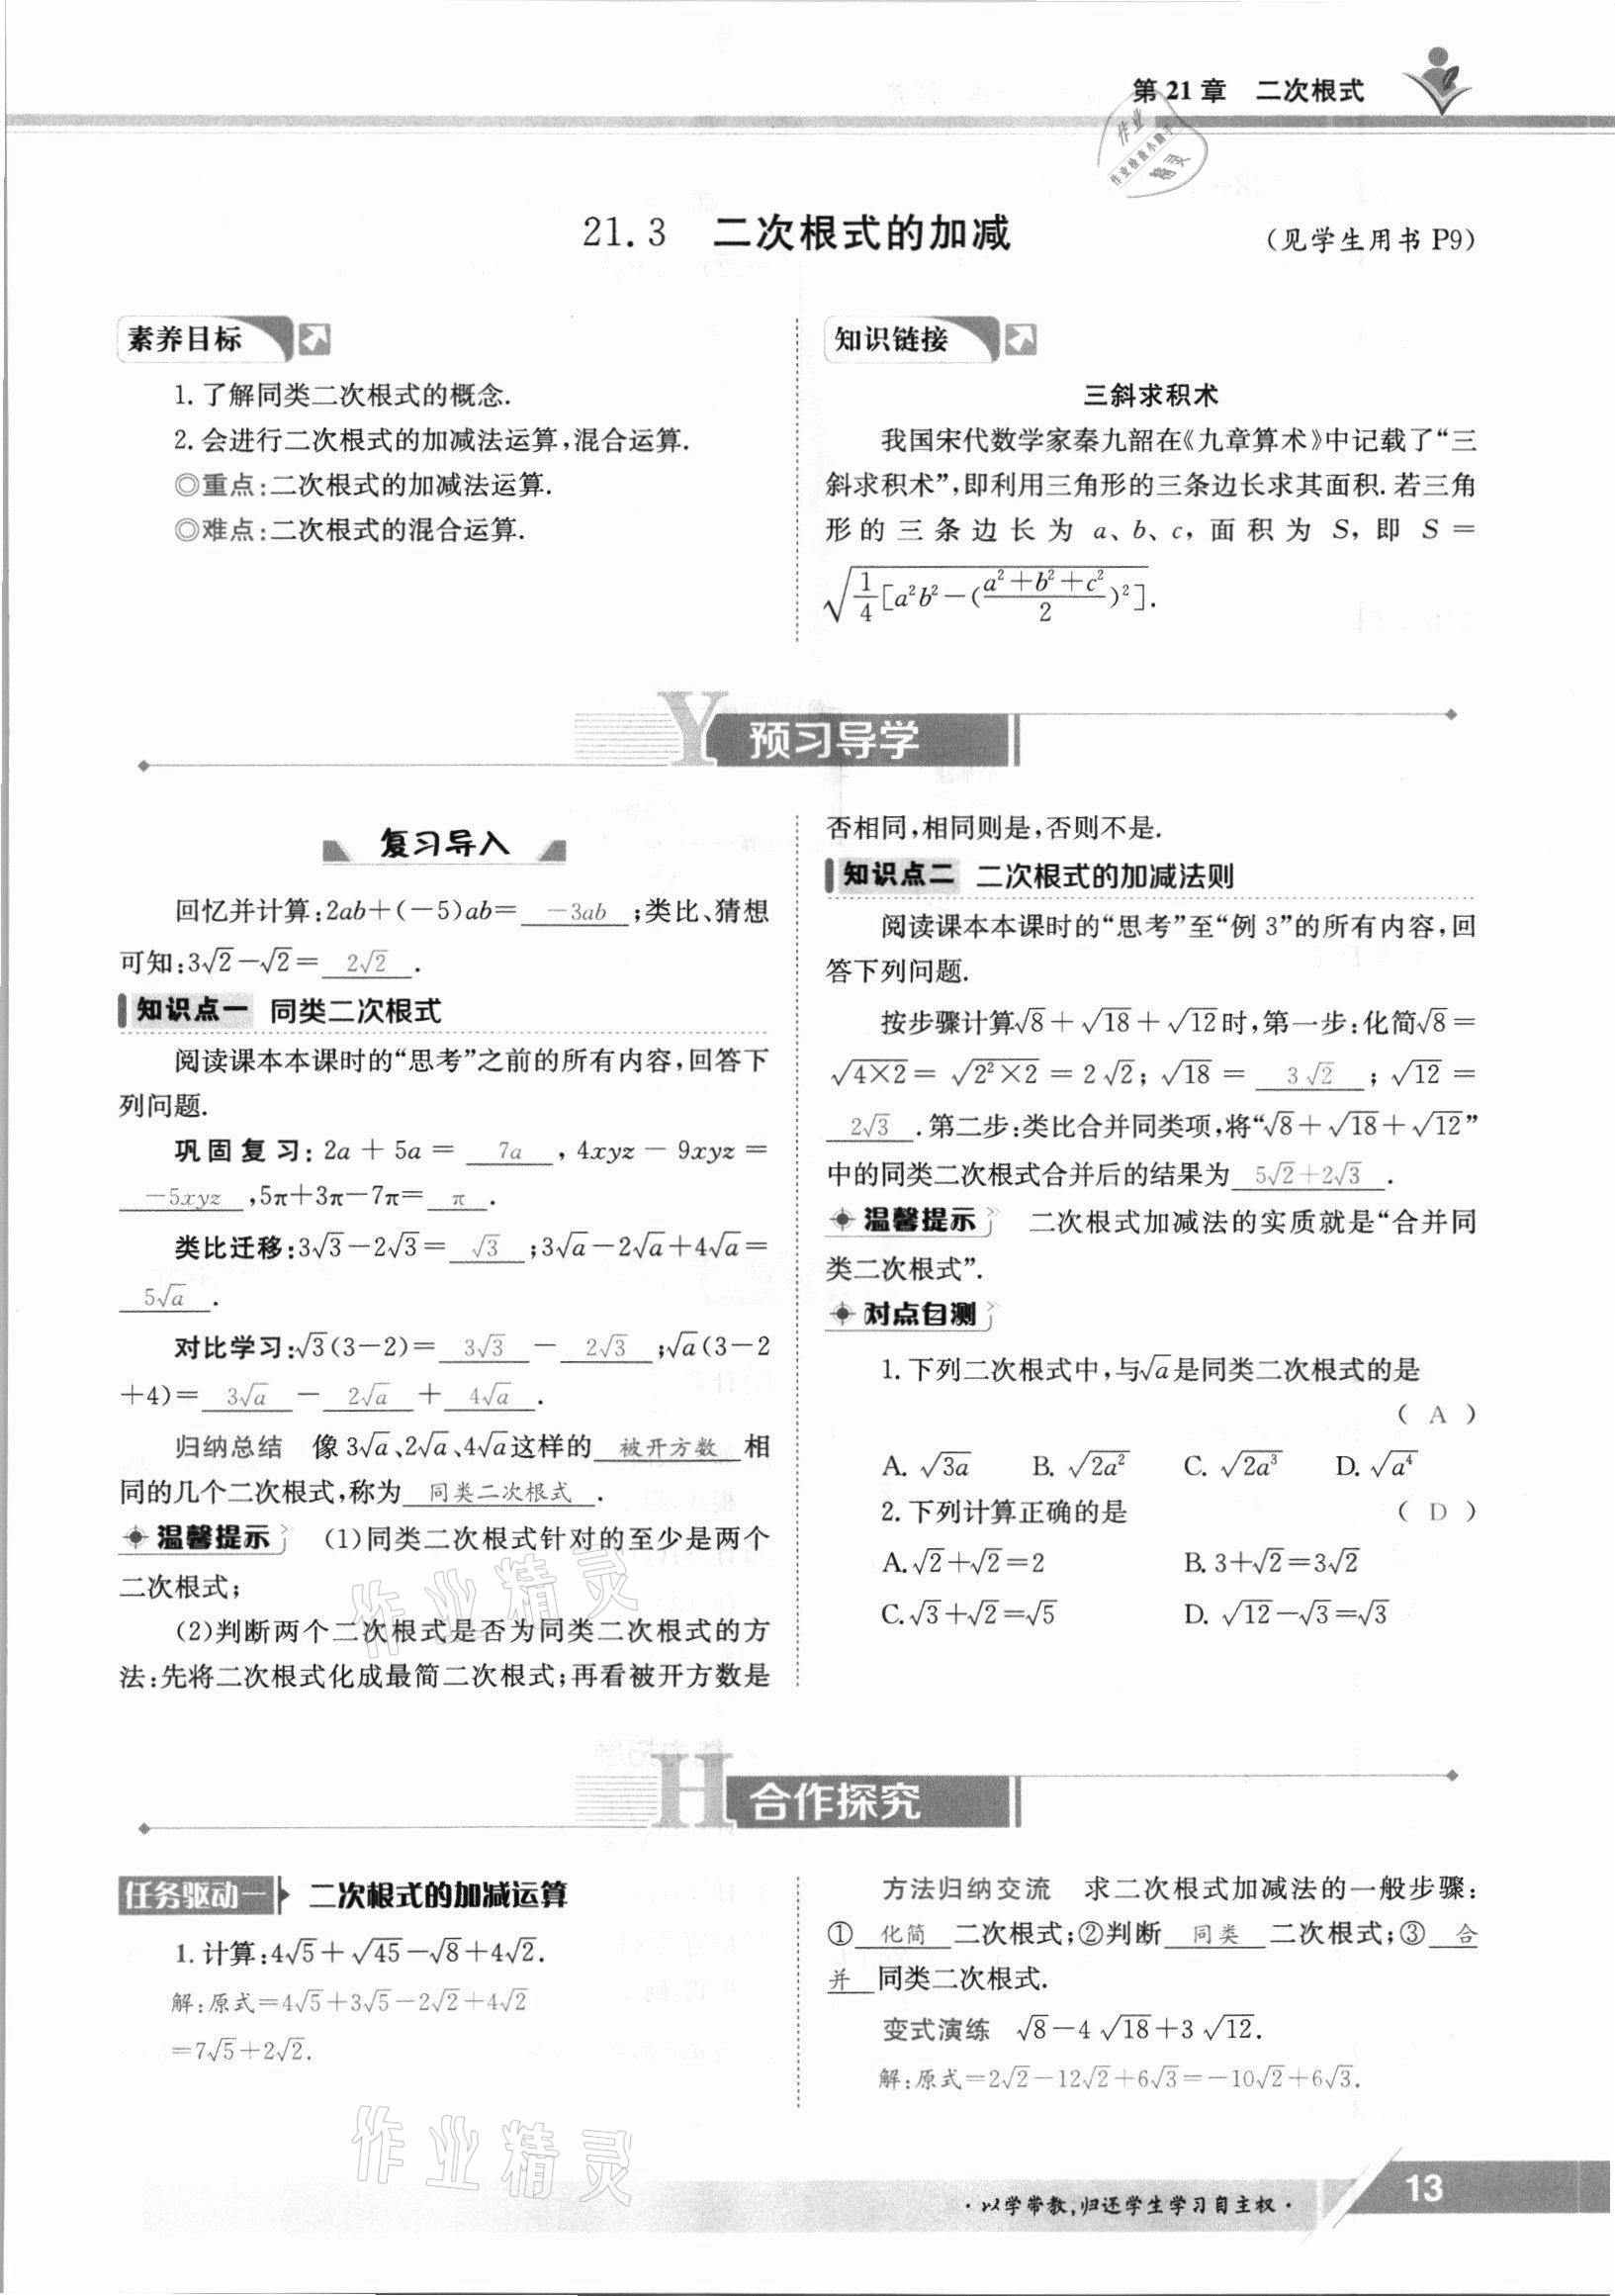 第 21 章　二次根式
作业
作业检查小助手
精灵
21.3　二次根式的加减
(见学生用书 P9)
素养目标
1. 了解同类二次根式的概念.
2. 会进行二次根式的加减法运算,混合运算.
◎重点:二次根式的加减法运算.
◎难点:二次根式的混合运算.
知识链接
三斜求积术
我国宋代数学家秦九韶在《九章算术》中记载了“三
斜求积术”,即利用三角形的三条边长求其面积. 若三角
形的三条边长为 a、b、c, 面积为 S, 即 S =
√(1/4[a²b²-((a²+b²+c²)/2)²]).
Y 预习导学
复习导入
回忆并计算:2ab+(-5)ab= -3ab ;类比、猜想
可知:3√2-√2= 2√2 .
知识点一　同类二次根式
阅读课本本课时的“思考”之前的所有内容,回答下
列问题.
巩固复习: 2a + 5a = 7a , 4xyz - 9xyz =
-5xyz ,5π+3π-7π= π .
类比迁移:3√3-2√3= √3 ;3√a-2√a+4√a=
5√a .
对比学习:√3(3-2)= 3√3 - 2√3 ;√a(3-2
+4)= 3√a - 2√a + 4√a .
归纳总结　像 3√a、2√a、4√a这样的 被开方数 相
同的几个二次根式,称为 同类二次根式 .
温馨提示　(1)同类二次根式针对的至少是两个
二次根式;
(2)判断两个二次根式是否为同类二次根式的方
法:先将二次根式化成最简二次根式;再看被开方数是
否相同,相同则是,否则不是.
知识点二　二次根式的加减法则
阅读课本本课时的“思考”至“例 3”的所有内容,回
答下列问题.
按步骤计算√8+√18+√12时,第一步:化简√8=
√(4×2)= √(2²×2) = 2√2; √18 = 3√2 ; √12 =
2√3 .第二步:类比合并同类项,将“√8+√18+√12”
中的同类二次根式合并后的结果为 5√2+2√3 .
温馨提示　二次根式加减法的实质就是“合并同
类二次根式”.
对点自测
1. 下列二次根式中,与√a是同类二次根式的是
( A )
A. √(3a)　B. √(2a²)　C. √(2a³)　D. √(a⁴)
2. 下列计算正确的是　( D )
A. √2+√2=2　B. 3+√2=3√2
C. √3+√2=√5　D. √12-√3=√3
作业精灵
H 合作探究
任务驱动一　二次根式的加减运算
1. 计算:4√5+√45-√8+4√2.
解:原式=4√5+3√5-2√2+4√2
=7√5+2√2.
方法归纳交流　求二次根式加减法的一般步骤:
① 化简 二次根式;②判断 同类 二次根式;③ 合
并 同类二次根式.
变式演练　√8-4√18+3√12.
解:原式=2√2-12√2+6√3=-10√2+6√3.
作业精灵
·以学带教,归还学生学习自主权·
13